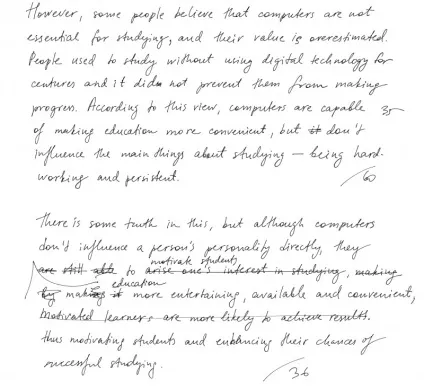 However, some people believe that computers are not
essential for studying, and their value is overestimated.
People used to study without using digital technology for
centures and it did not prevent them from making
progress. According to this view, computers are capable 35
of making education more convenient, but it don't
influence the main things about studying — being hard-
working and persistent.
60
There is some truth in this, but although computers
don't influence a person's personality directly, they
motivate students
are still able to arise one's interest in studying, making
education
by making it more entertaining, available and convenient,
Motivated learners are more likely to achieve results.
thus motivating students and enhancing their chances of
successful studying.
36